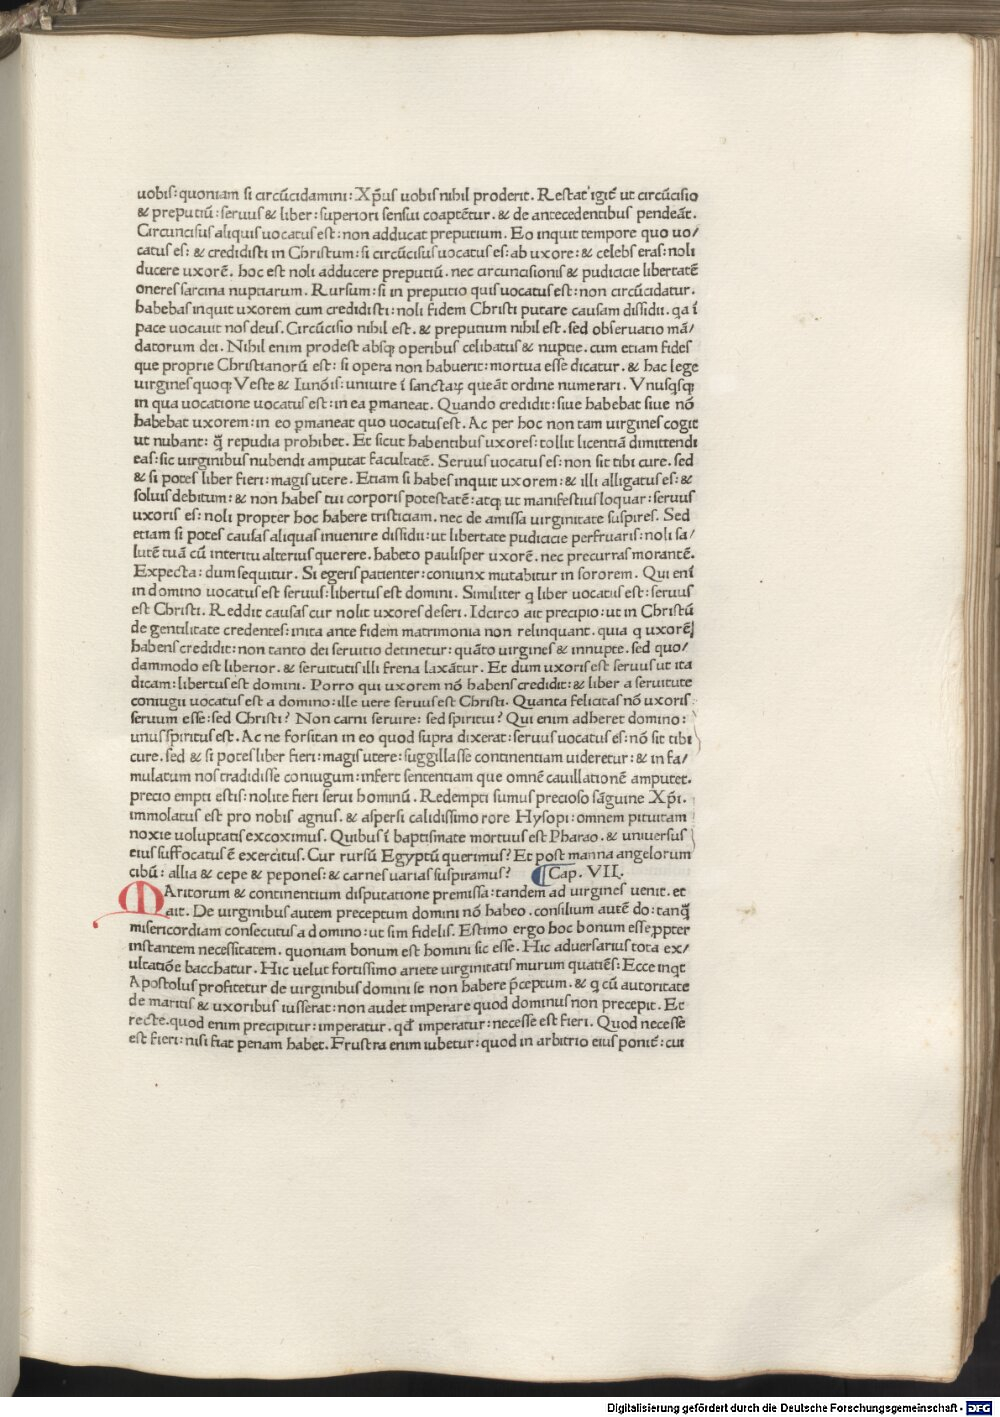 uobis: quoniam si circūcidamini: Xp̄us uobis nihil proderit. Restat igit̄ ut circūcisio
& preputiū: seruus & liber: superiori sensui coaptētur. & de antecedentibus pendeāt.
Circuncisus aliquis uocatus est: non adducat preputium. Eo inquit tempore quo uo/
catus es: & credidisti in Christum: si circūcisus uocatus es: ab uxore: & celebs eras: noli
ducere uxorē. hoc est noli adducere preputiū. nec circuncisionis & pudicicie libertatē
oneres sarcina nuptiarum. Rursum: si in preputio quis uocatus est: non circūcidatur.
habebas inquit uxorem cum credidisti: noli fidem Christi putare causam dissidii. qa ī
pace uocauit nos deus. Circūcisio nihil est. & preputium nihil est. sed obseruatio mā/
datorum dei. Nihil enim prodest absq; operibus celibatus & nuptie. cum etiam fides
que proprie Christianorū est: si opera non habuerit: mortua esse dicatur. & hac lege
uirgines quoq; Veste & Iunōis: uniuire ī sanctaꝝ queāt ordine numerari. Vnusq̄sq;
in qua uocatione uocatus est: in ea ꝑmaneat. Quando credidit: siue habebat siue nō
habebat uxorem: in eo ꝑmaneat quo uocatus est. Ac per hoc non tam uirgines cogit
ut nubant: q̄ꝫ repudia prohibet. Et sicut habentibus uxores: tollit licentiā dimittendi
eas: sic uirginibus nubendi amputat facultatē. Seruus uocatus es: non sit tibi cure. sed
& si potes liber fieri: magis utere. Etiam si habes inquit uxorem: & illi alligatus es: &
soluis debitum: & non habes tui corporis potestatē: atq; ut manifestius loquar: seruus
uxoris es: noli propter hoc habere tristiciam. nec de amissa uirginitate suspires. Sed
etiam si potes causas aliquas inuenire dissidii: ut libertate pudicicie perfruaris: noli sa/
lutē tuā cū interitu alterius querere. habeto paulisper uxorē. nec precurras morantē.
Expecta: dum sequitur. Si egeris patienter: coniunx mutabitur in sororem. Qui enī
in domino uocatus est seruus: libertus est domini. Similiter q liber uocatus est: seruus
est Christi. Reddit causas cur nolit uxores deseri. Idcirco ait precipio: ut in Christū
de gentilitate credentes: inita ante fidem matrimonia non relinquant. quia q uxorē
habens credidit: non tanto dei seruitio detinetur: quāto uirgines & innupte. sed quo/
dammodo est liberior. & seruitutis illi frena laxātur. Et dum uxoris est seruus ut ita
dicam: libertus est domini. Porro qui uxorem nō habens credidit: & liber a seruitute
coniugii uocatus est a domino: ille uere seruus est Christi. Quanta felicitas nō uxoris
seruum esse: sed Christi? Non carni seruire: sed spiritui? Qui enim adheret domino:
unus spiritus est. Ac ne forsitan in eo quod supra dixerat: seruus uocatus es: nō sit tibi
cure. sed & si potes liber fieri: magis utere: suggillasse continentiam uideretur: & in fa/
mulatum nos tradidisse coniugum: infert sententiam que omnē cauillationē amputet.
precio empti estis: nolite fieri serui hominū. Redempti sumus precioso sāguine Xp̄i.
immolatus est pro nobis agnus. & aspersi calidissimo rore Hysopi: omnem pituitam
noxie uoluptatis excoximus. Quibus ī baptismate mortuus est Pharao. & uniuersus
eius suffocatus ē exercitus. Cur rursū Egyptū querimus? Et post manna angelorum
cibū: allia & cepe & pepones: & carnes uarias suspiramus? ¶ Cap. VII.
MAritorum & continentium disputatione premissa: tandem ad uirgines uenit. et
ait. De uirginibus autem preceptum domini nō habeo. consilium autē do: tanq̄ꝫ
misericordiam consecutus a domino: ut sim fidelis. Estimo ergo hoc bonum esse ꝓpter
instantem necessitatem. quoniam bonum est homini sic esse. Hic aduersarius tota ex/
ultatiōe bacchatur. Hic uelut fortissimo ariete uirginitatis murum quatiēs: Ecce inqt
Apostolus profitetur de uirginibus domini se non habere p̄ceptum. & q cū autoritate
de maritis & uxoribus iusserat: non audet imperare quod dominus non precepit. Et
recte. quod enim precipitur: imperatur. qd̄ imperatur: necesse est fieri. Quod necesse
est fieri: nisi fiat penam habet. Frustra enim iubetur: quod in arbitrio eius ponit̄: cui
Digitalisierung gefördert durch die Deutsche Forschungsgemeinschaft - DFG